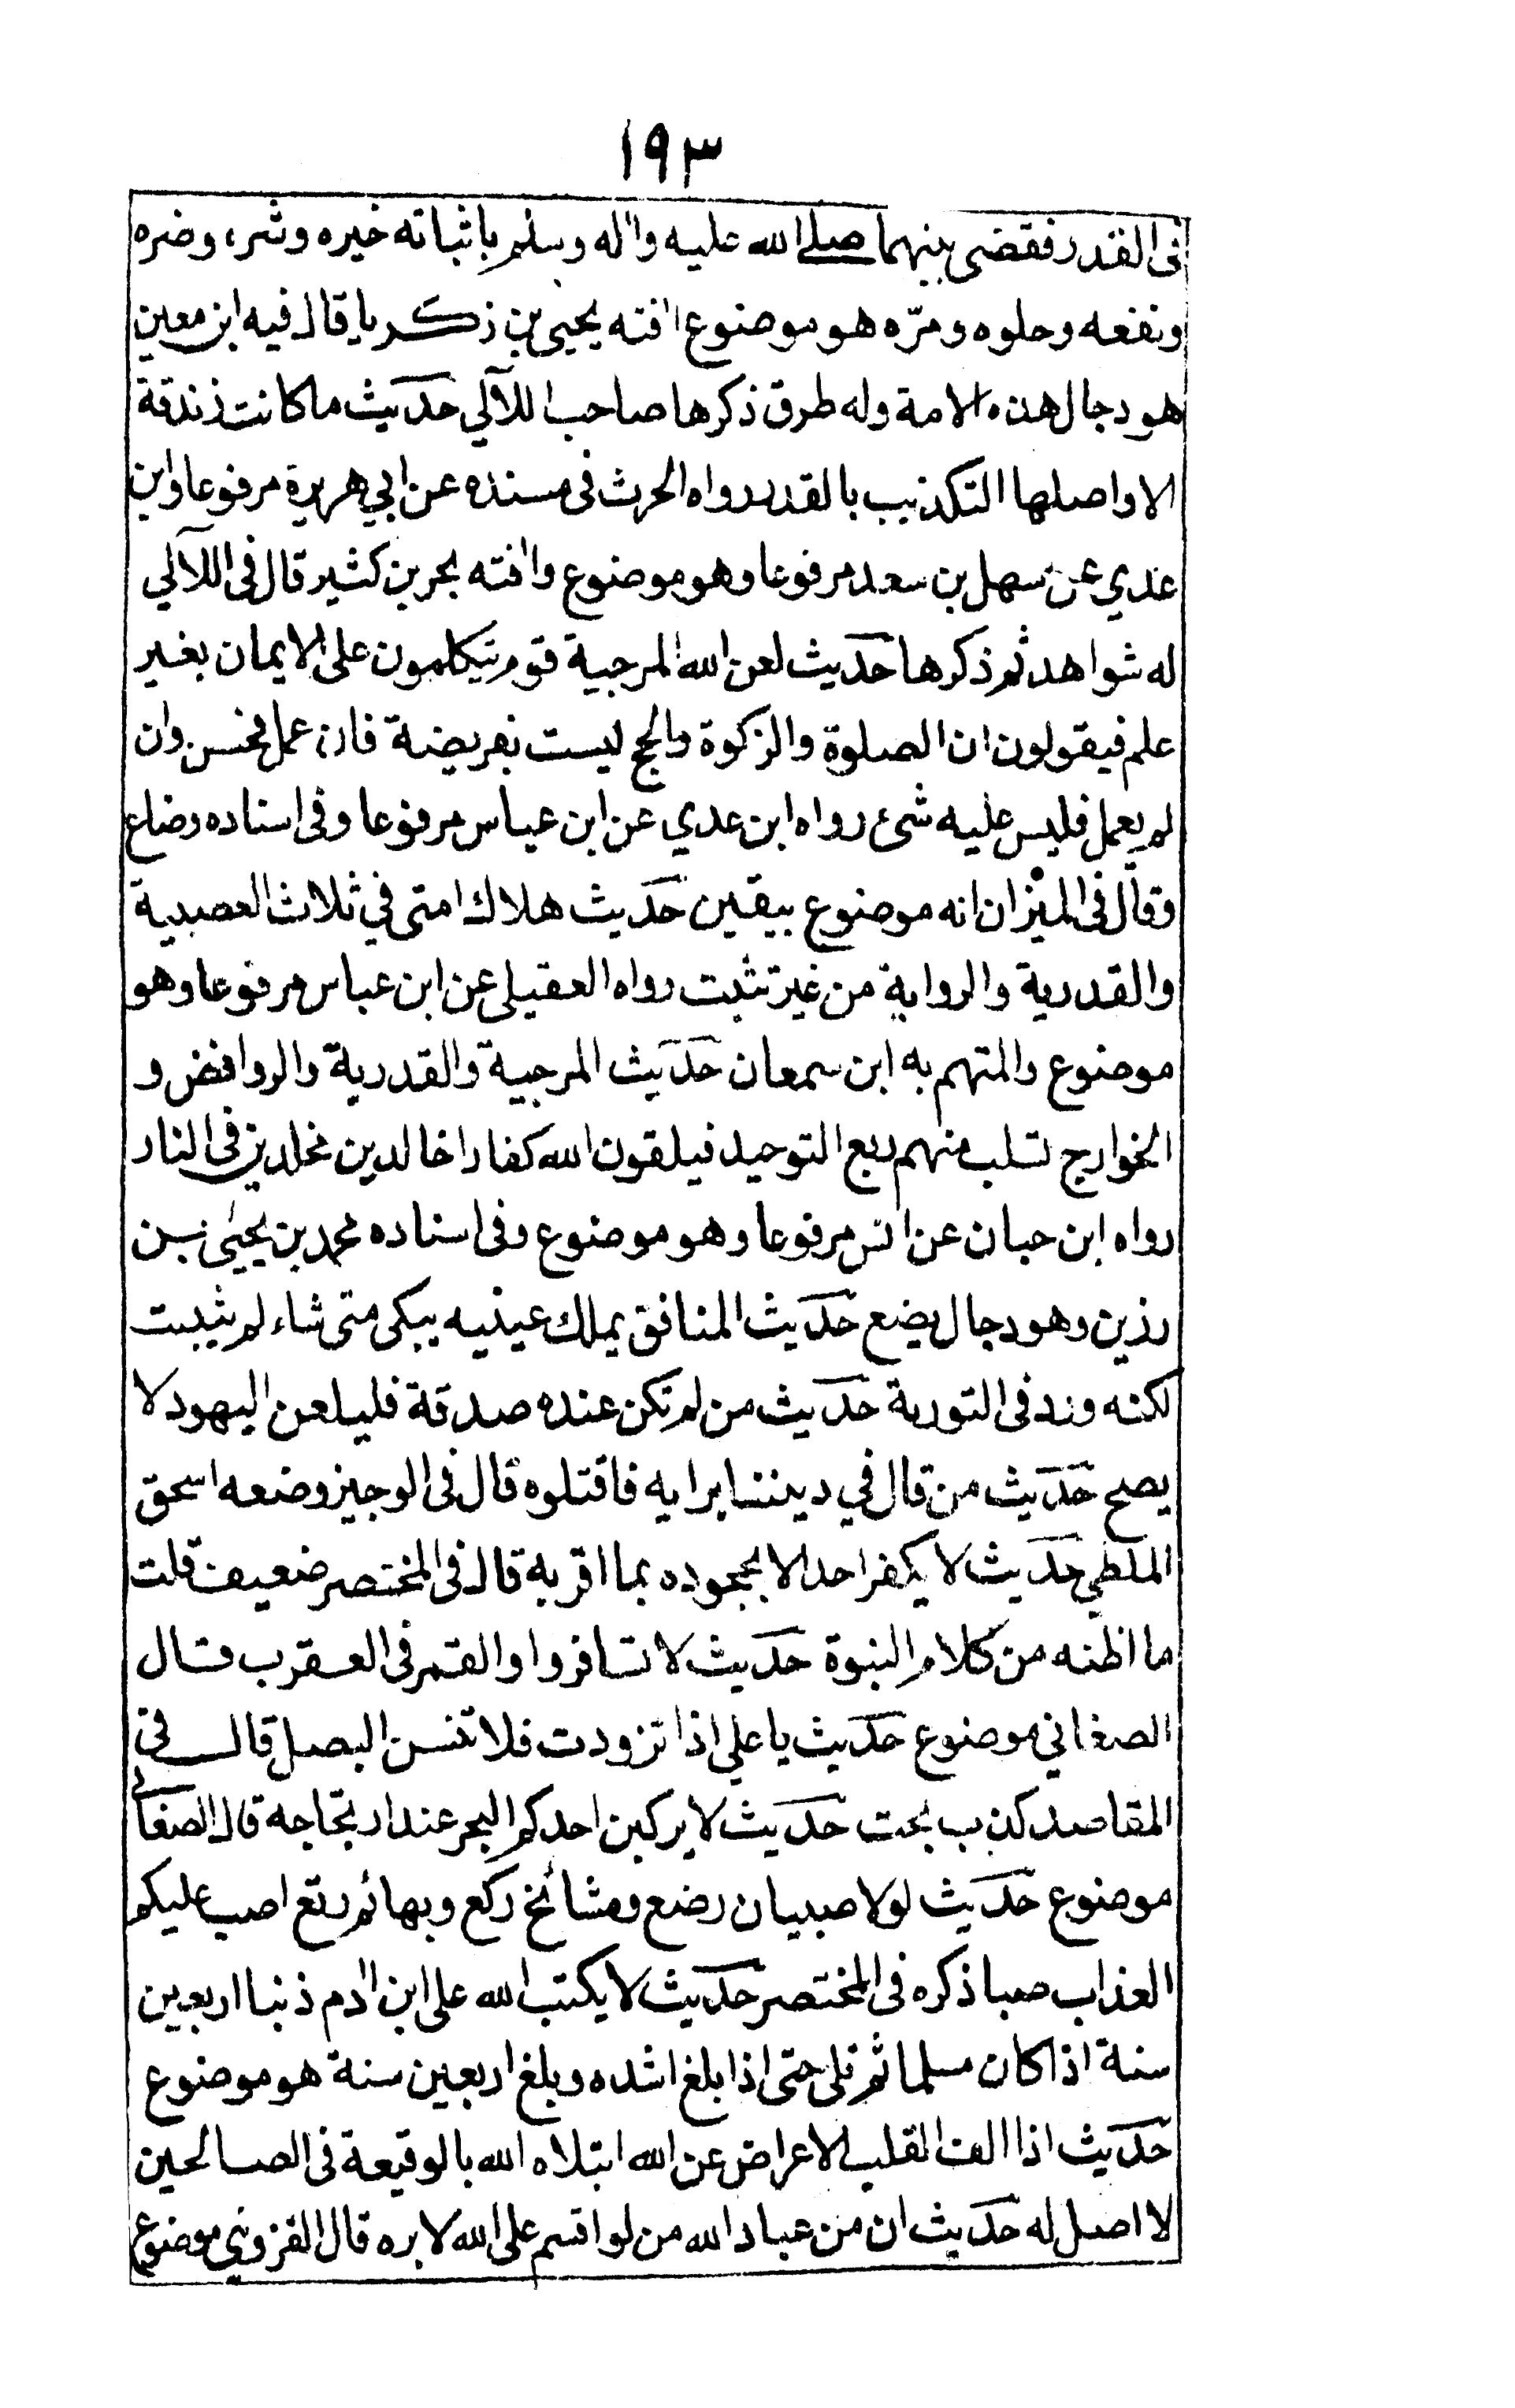 ١٩٣
فى القدر فقضى بينهما صلے الله عليه واٰله وسلم باثباته خيره وشره وضره
ونفعه وحلوه ومرّه هو موضوع اٰفته يحيى بن زكريا قال فيه ابن معين
هو دجال هذه الامة وله طرق ذكرها صاحب اللآلي حديث ما كانت زندقة
الا واصلها التكذيب بالقدر رواه الحرث فى مسنده عن ابي هريرة مرفوعا وابن
عدي عن سهل بن سعد مرفوعا وهو موضوع واٰفته بحر بن كثير قال فى اللآلي
له شواهد ثم ذكرها حديث لعن الله المرجية قوم يتكلمون على الايمان بغير
علم فيقولون ان الصلوة والزكوة والحج ليست بفريضة فان عمل فحسن وان
لم يعمل فليس عليه شئ رواه ابن عدي عن ابن عباس مرفوعا وفى اسناده وضاع
وقال فى الميزان انه موضوع بيقين حديث هلاك امتى في ثلاث العصبية
والقدرية والرواية من غير تثبت رواه العقيلى عن ابن عباس مرفوعا وهو
موضوع والمتهم به ابن سمعان حديث المرجية والقدرية والروافض و
الخوارج تسلب منهم ربع التوحيد فيلقون الله كفارا خالدين مخلدين فى النار
رواه ابن حبان عن انس مرفوعا وهو موضوع وفى اسناده محمد بن يحيٰى بن
رزين وهو دجال يضع حديث المنافق يملك عينيه يبكى متى شاء لم يثبت
لكنه ورد فى التورية حديث من لم تكن عنده صدقة فليلعن اليهود لا
يصح حديث من قال في ديننا برايه فاقتلوه قال فى الوجيز وضعه اسحق
الملطي حديث لا يكفر احد الا بجحوده بما اقر به قال فى المختصر ضعيف قلت
ما اظنه من كلام النبوة حديث لا تسافروا والقمر فى العقرب قال
الصغاني موضوع حديث يا علي اذا تزودت فلا تنس البصل قال فى
المقاصد كذب بحت حديث لا يركبن احدكم البحر عند ارتجاجه قال الصغانى
موضوع حديث لولا صبيان رضع ومشائخ ركع وبهائم رتع لصب عليكم
العذاب صبا ذكره فى المختصر حديث لا يكتب الله على ابن اٰدم ذنبا اربعين
سنة اذا كان مسلما ثم تلى حتى اذا بلغ اشده وبلغ اربعين سنة هو موضوع
حديث اذا الف القلب الاعراض عن الله ابتلاه الله بالوقيعة فى الصالحين
لا اصل له حديث ان من عباد الله من لو اقسم على الله لابره قال القزويني موضوع